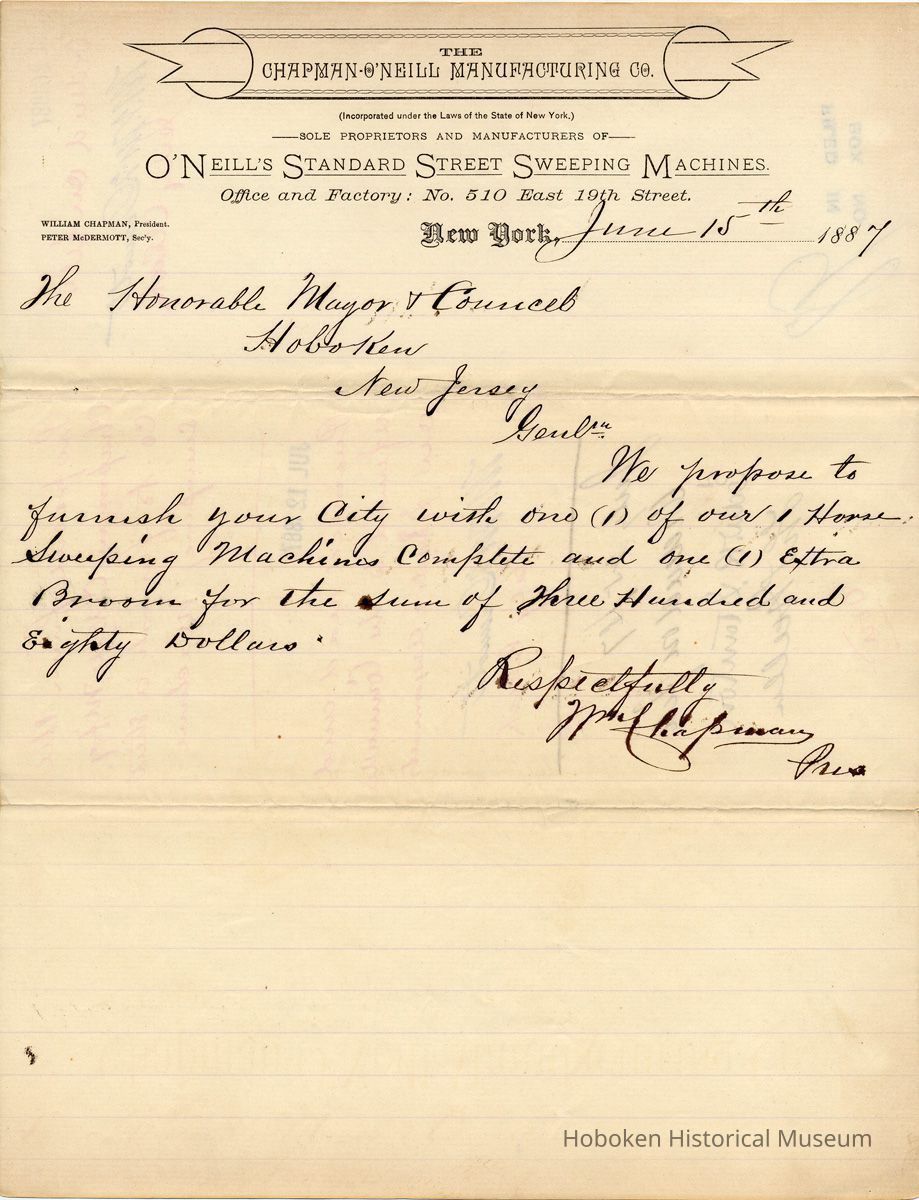 THE
CHAPMAN-O'NEILL MANUFACTURING CO.
(Incorporated under the Laws of the State of New York.)
SOLE PROPRIETORS AND MANUFACTURERS OF
O'NEILL'S STANDARD STREET SWEEPING MACHINES.
Office and Factory: No. 510 East 19th Street.
WILLIAM CHAPMAN, President.
PETER McDERMOTT, Sec'y.
New York, June 15th 1887
The Honorable Mayor & Councel
Hoboken
New Jersey
Gentn
We propose to
furnish your City with one (1) of our 1 Horse
Sweeping Machines Complete and one (1) Extra
Broom for the sum of Three Hundred and
Eighty Dollars
Respectfully
Wm Chapman
Pres
Hoboken Historical Museum